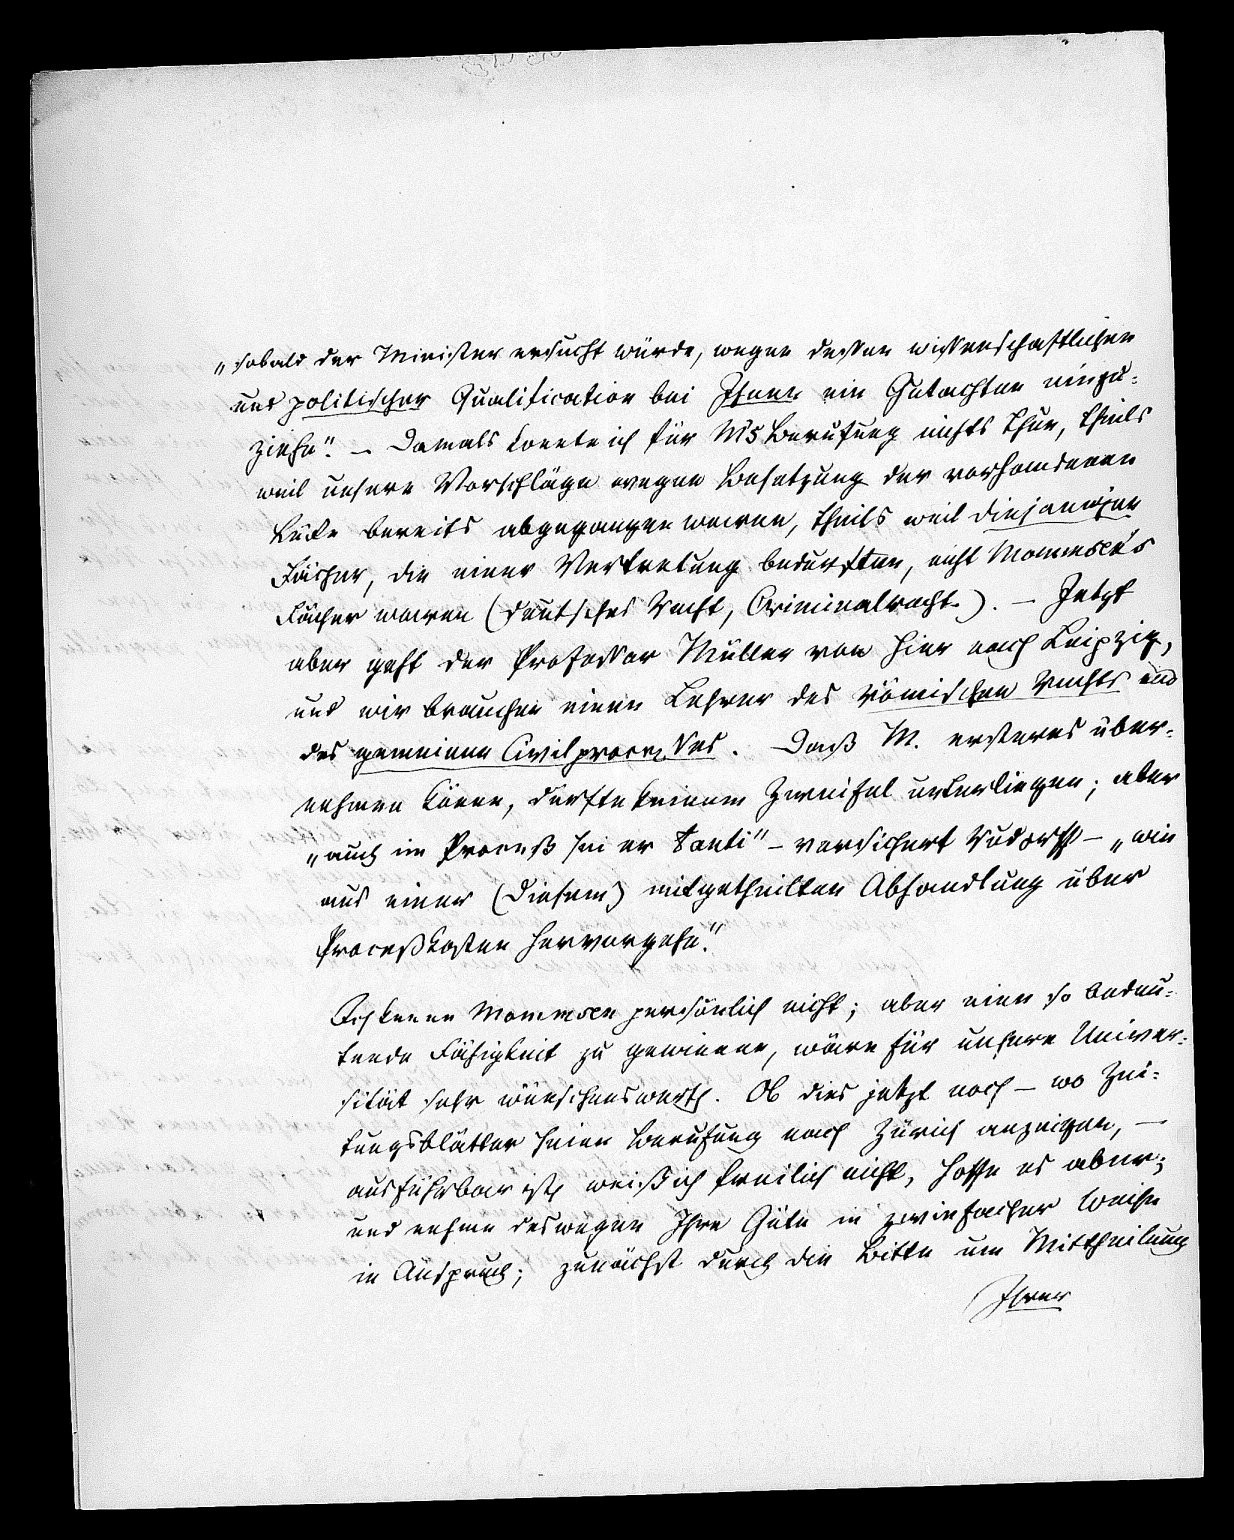 „sobald der Minister ersucht würde, wegen dessen wissenschaftlichen
und politischer Qualification bei Ihnen ein Gutachten einzu-
ziehn“. – Damals konnte ich für M's Berufung nichts thun, theils
weil unsere Vorschläge wegen Besetzung der vorhandenen
Lücke bereits abgegangen waren, theils weil diejenigen
Fächer, die einer Vertretung bedurften, nicht Mommsen's
Fächer waren (deutsches Recht, Criminalrecht). – Jetzt
aber geht der Professor Müller von hier nach Leipzig,
und wir brauchen einen Lehrer des römischen Rechts und
des gemeinen Civilprocesses. Daß M. ersteres über-
nehmen könne, dürfte keinem Zweifel unterliegen; aber
„auch im Proceß sei er tanti“ – versichert Rudorff – „wie
aus einer (diesem) mitgetheilten Abhandlung über
Proceßkosten hervorgehe.“
Ich kenne Mommsen persönlich nicht; aber eine so bedeu-
tende Fähigkeit zu gewinnen, wäre für unsere Univer-
sität sehr wünschenswerth. Ob dies jetzt noch – wo Zei-
tungsblätter seine Berufung nach Zürich anzeigen, –
ausführbar ist, weiß ich freilich nicht, hoffe es aber;
und nehme deswegen Ihre Güte in zwiefacher Weise
in Anspruch; zunächst durch die Bitte um Mittheilung
Ihrer